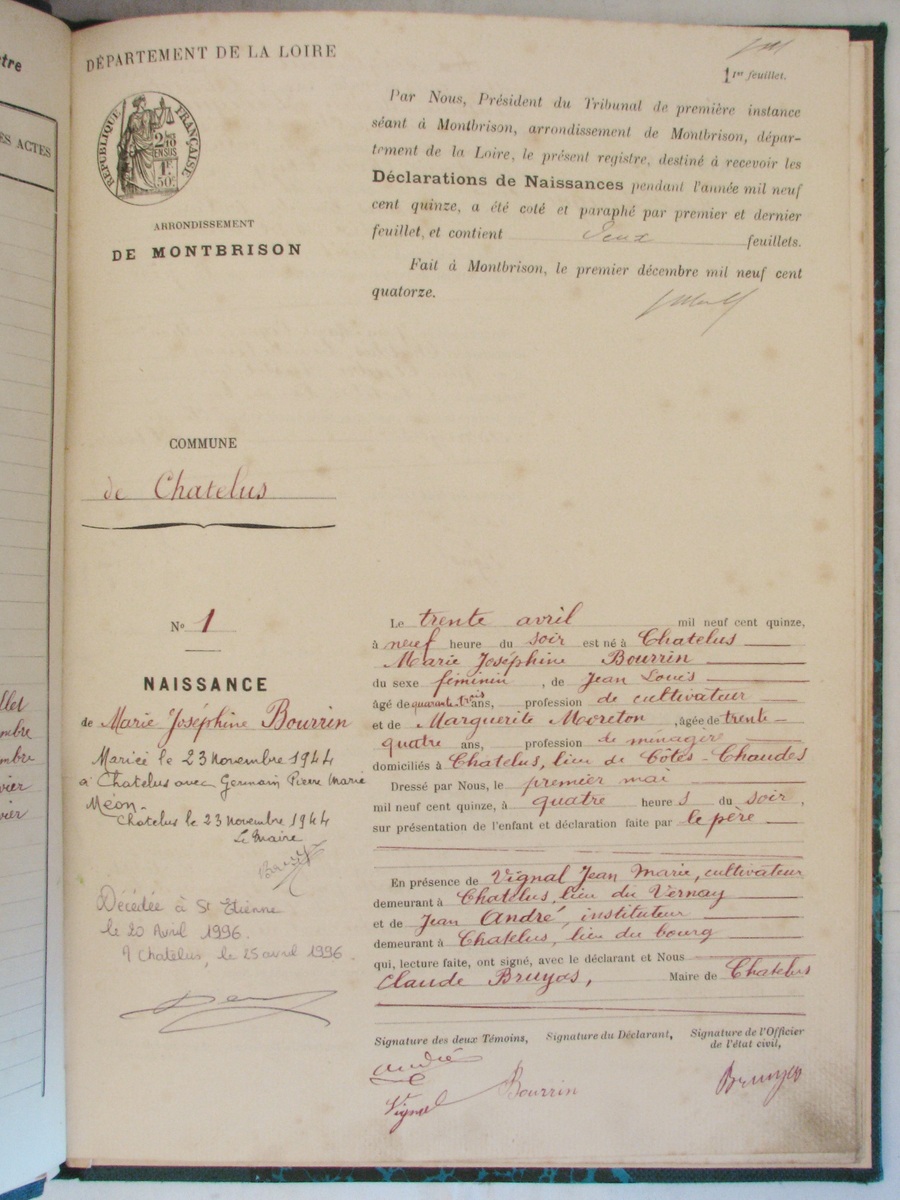 DÉPARTEMENT DE LA LOIRE
RÉPUBLIQUE FRANÇAISE
ARRONDISSEMENT
DE MONTBRISON
1er feuillet.
Par Nous, Président du Tribunal de première instance
séant à Montbrison, arrondissement de Montbrison, dépar-
tement de la Loire, le présent registre, destiné à recevoir les
Déclarations de Naissances pendant l'année mil neuf
cent quinze, a été coté et paraphé par premier et dernier
feuillet, et contient Deux feuillets.
Fait à Montbrison, le premier décembre mil neuf cent
quatorze.
COMMUNE
de Chatelus
No 1
NAISSANCE
de Marie Joséphine Bourrin
Mariée le 23 novembre 1944
à Chatelus avec Germain Pierre Marie
Méon.
Chatelus le 23 novembre 1944
Le Maire
Décédée à St Etienne
le 20 Avril 1996.
Chatelus, le 25 avril 1996.
Le trente avril mil neuf cent quinze,
à neuf heure du soir est né à Chatelus
Marie Joséphine Bourrin
du sexe féminin, de Jean Louis
âgé de quarante-trois ans, profession de cultivateur
et de Marguerite Moreton, âgée de trente-
quatre ans, profession de ménagère
domiciliés à Chatelus, lieu de Côtes-Chaudes
Dressé par Nous, le premier mai
mil neuf cent quinze, à quatre heures du soir,
sur présentation de l'enfant et déclaration faite par le père
En présence de Vignal Jean Marie, cultivateur
demeurant à Chatelus, lieu du Vernay
et de Jean André, instituteur
demeurant à Chatelus, lieu du bourg
qui, lecture faite, ont signé, avec le déclarant et Nous
Claude Bruyas, Maire de Chatelus
Signature des deux Témoins, Signature du Déclarant, Signature de l'Officier
de l'état civil,
André
Vignal Bourrin Bruyas
tre
ES ACTES
llet
mbre
mbre
vier
vier